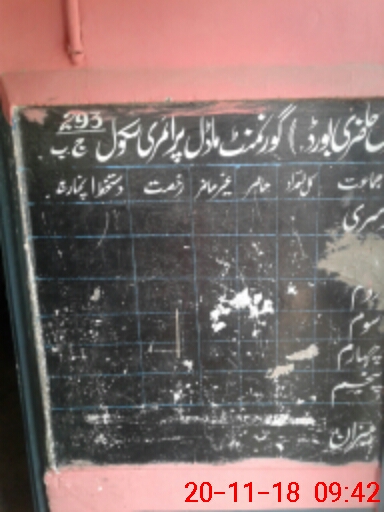 حاضری بورڈ ) گورنمنٹ ماڈل پرائمری سکول 293 ج ب
جماعت کل تعداد حاضر غیر حاضر رخصت دستخط انچارج
نرسری
دوم
سوم
چہارم
پنجم
میزان
20-11-18 09:42